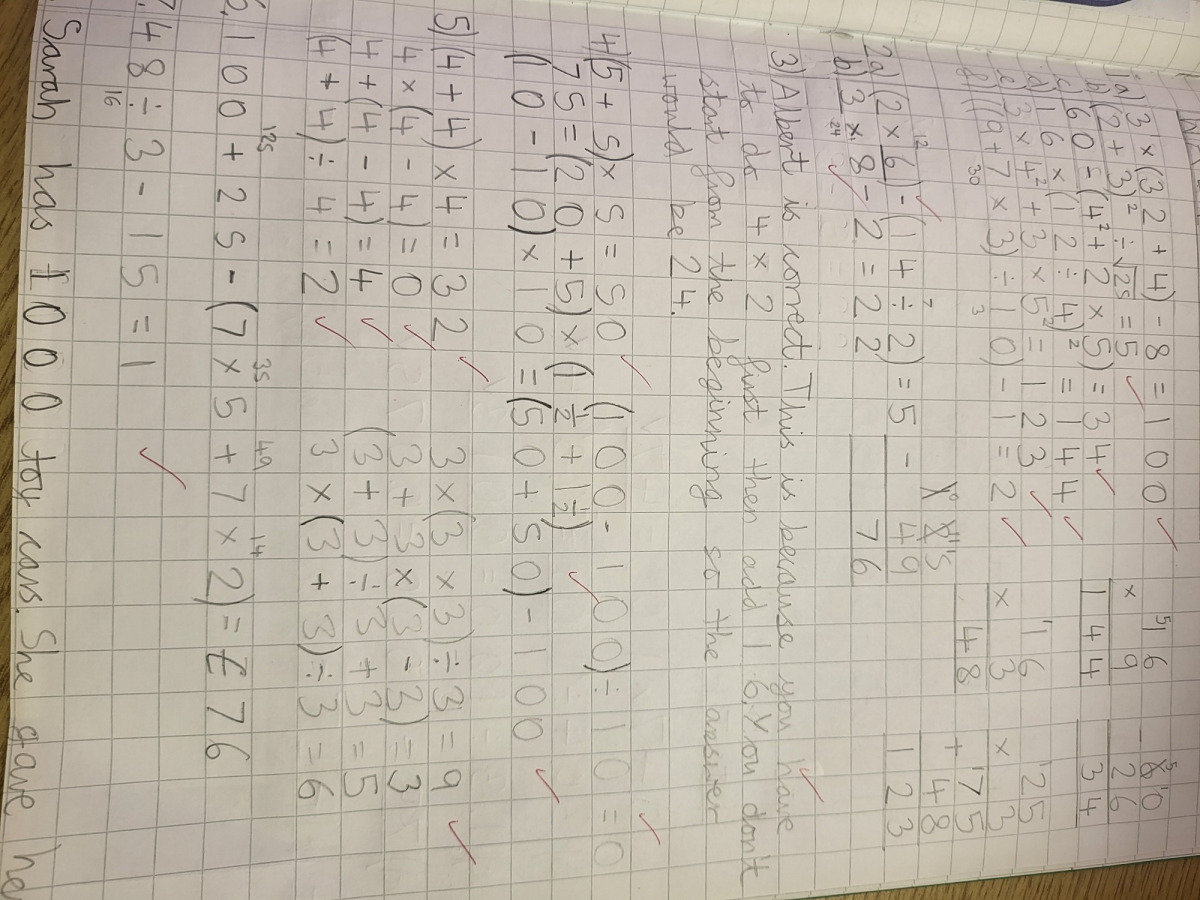 1a) 3 × (32 + 4) - 8 = 100
b) (2 + 3)² ÷ √25 = 5
c) 60 = (4² + 2 × 5) = 34
d) 16 × (12 ÷ 4)² = 144
e) 3 × 4² + 3 × 5² = 123
f) ((9 + 7 × 3) ÷ 10) - 1 = 2
30 3
5
16
× 9
144
5
6 10
- 26
34
1
16
× 3
48
1
25
× 3
75
+ 48
123
12 7
2a) (2 × 6) - (14 ÷ 2) = 5
b) 3 × 8 - 2 = 22
24
0 11
1 2 15
- 49
76
3) Albert is correct. This is because you have
to do 4 × 2 first then add 16. You don't
start from the beginning so the answer
would be 24.
4) (5 + 5) × 5 = 50 (100 - 100) ÷ 10 = 0
75 = (20 + 5) × (1 1/2 + 1 1/2)
(10 - 10) × 10 = (50 + 50) - 100
5) (4 + 4) × 4 = 32 3 × (3 × 3) ÷ 3 = 9
4 × (4 - 4) = 0 3 + 3 × (3 - 3) = 3
4 + (4 - 4) = 4 (3 + 3) ÷ 3 + 3 = 5
(4 + 4) ÷ 4 = 2 3 × (3 + 3) ÷ 3 = 6
125 35 49 14
6. 100 + 25 - (7 × 5 + 7 × 2) = £76
7. 48 ÷ 3 - 15 = 1
16
Sarah has 1000 toy cars. She gave he